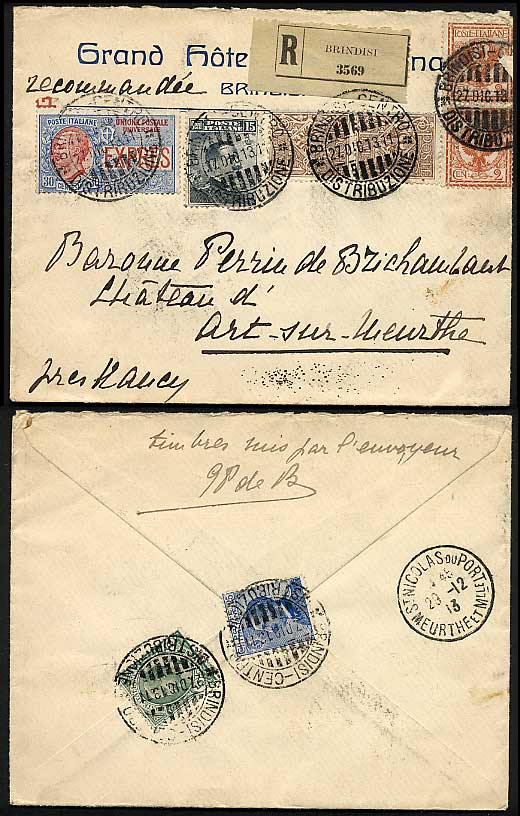 Grand Hôte
R
BRINDISI
3569
recommandée
BRIN
POSTE ITALIANE
UNIONE POSTALE
UNIVERSALE
EXPRES
30
15
POSTE ITALIANE
CEN. 2
BRINDISI-CENTRO
27.DIC.13.11
DISTRIBUZIONE
Baronne Perrin de Brichambaut
Château d'
Art-sur-Meurthe
près Nancy
timbres mis par l'envoyeur
P de B
ST NICOLAS DU PORT
29-12
13
MEURTHE ET Mlle
BRINDISI-CENTRO